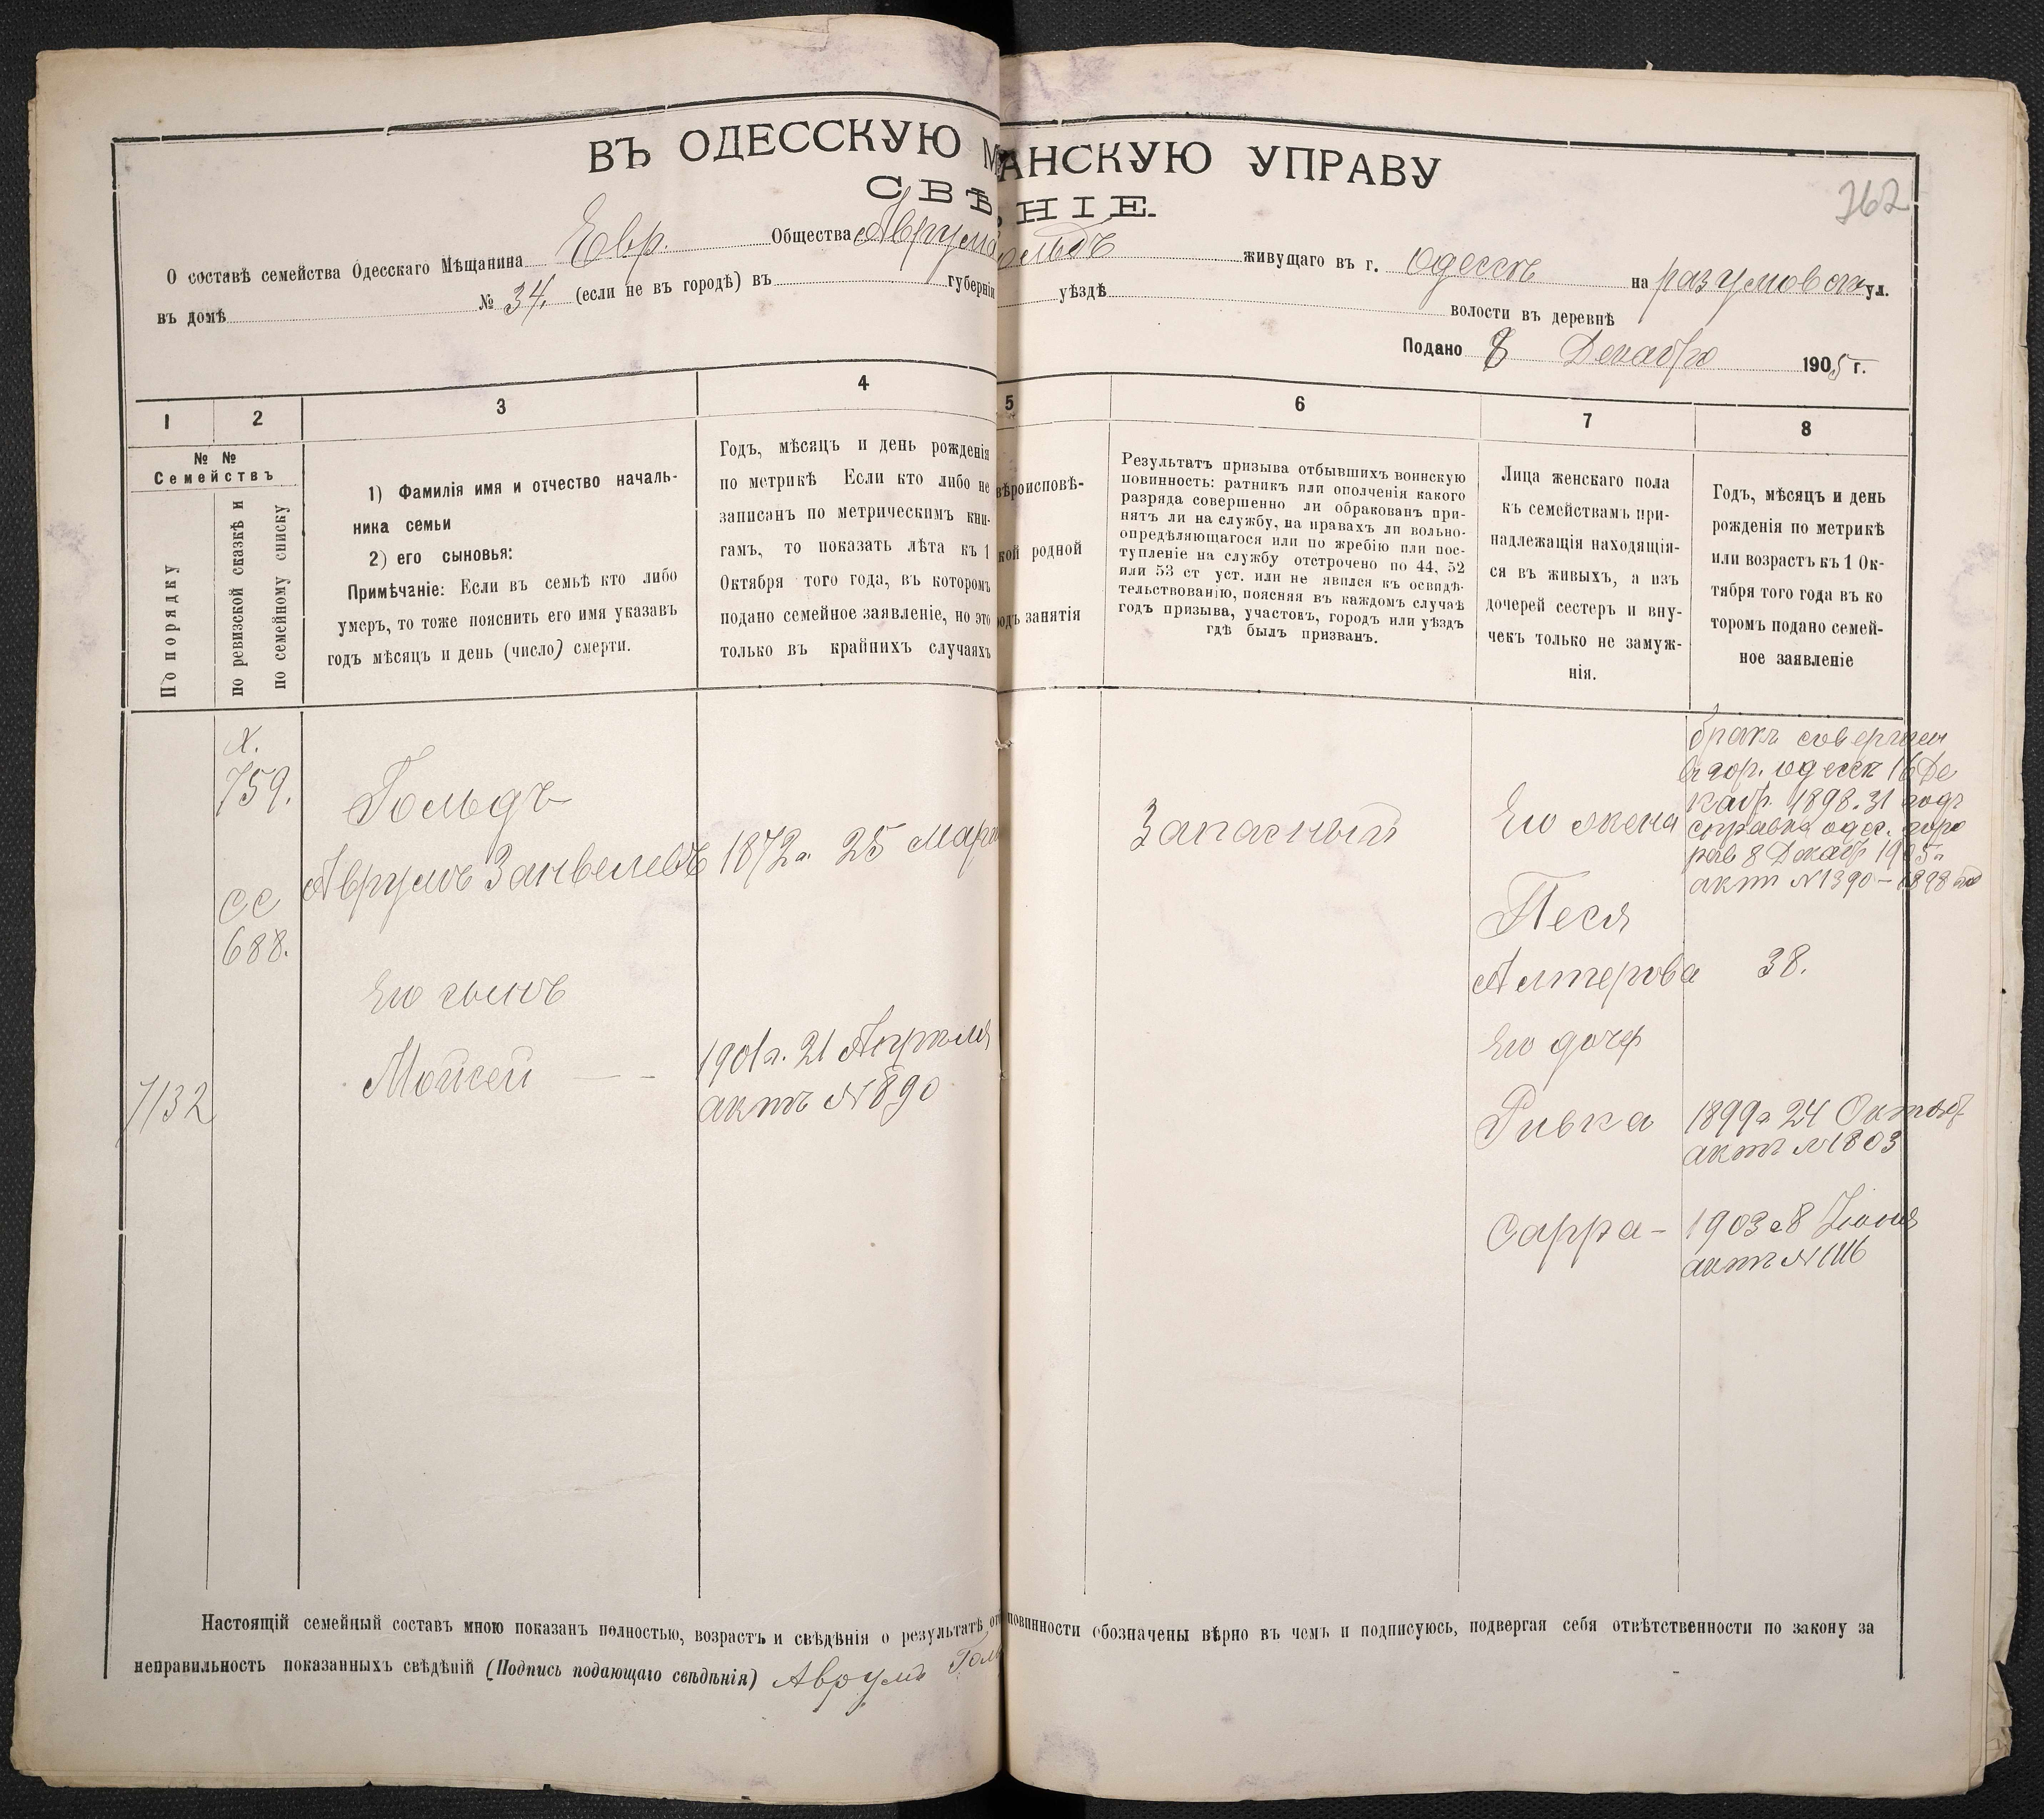 ВЪ ОДЕССКУЮ М АНСКУЮ УПРАВУ
362
СВѢ НІЕ.
О составѣ семейства Одесскаго Мѣщанина Евр. Общества Аврума ольдъ живущаго въ г. Одессѣ на разумовск ул.
въ домѣ № 34. (если не въ городѣ) въ губерніи уѣздѣ волости въ деревнѣ
Подано 8 Декабря 1905 г.
1 2 3 4 5 6 7 8
№ №
Семействъ
По порядку
по ревизской сказкѣ и
по семейному списку
1) Фамилія имя и отчество началь-
ника семьи
2) его сыновья:
Примѣчаніе: Если въ семьѣ кто либо
умеръ, то тоже пояснить его имя указавъ
годъ мѣсяцъ и день (число) смерти.
Годъ, мѣсяцъ и день рожденія
по метрикѣ Если кто либо не
записанъ по метрическимъ кни-
гамъ, то показать лѣта къ 1
Октября того года, въ которомъ
подано семейное заявленіе, но это
только въ крайнихъ случаяхъ
вѣроисповѣ-
кой родной
родъ занятія
Результатъ призыва отбывшихъ воинскую
повинность: ратникъ или ополченія какого
разряда совершенно ли обракованъ при-
нятъ ли на службу, на правахъ ли вольно-
опредѣляющагося или по жребію или пос-
тупленіе на службу отстрочено по 44, 52
или 53 ст уст. или не явился къ освидѣ-
тельствованію, поясняя въ каждомъ случаѣ
годъ призыва, участокъ, городъ или уѣздъ
гдѣ былъ призванъ.
Лица женскаго пола
къ семействамъ при-
надлежащія находящія-
ся въ живыхъ, а изъ
дочерей сестеръ и вну-
чекъ только не замуж-
нія.
Годъ, мѣсяцъ и день
рожденія по метрикѣ
или возрастъ къ 1 Ок-
тября того года въ ко
торомъ подано семей-
ное заявленіе
Х.
759.
сс
688.
7132
Гольдъ
Аврумъ Занвелевъ
1872г. 25 Март
Его сынъ
Мойсей — —
1901г. 21 Апрѣля
актъ №890
Запасный
Его жена
Песя
Алтерова
38.
бракъ совершен
в гор. одесск 16 Де
кабр. 1898. 31 годъ
справка одес. горо
рав 8 Декабр 1905г.
актъ №1390 – 1898
Его дочь
Ривка
1899г 24 Октяб
актъ №1803
Сарра –
1903г 8 Іюня
актъ №1116
Настоящій семейный составъ мною показанъ полностью, возрастъ и свѣдѣнія о результатѣ от повинности обозначены вѣрно въ чемъ и подписуюсь, подвергая себя отвѣтственности по закону за
неправильность показанныхъ свѣдѣній (Подпись подающаго свѣдѣнія) Аврумъ Голь